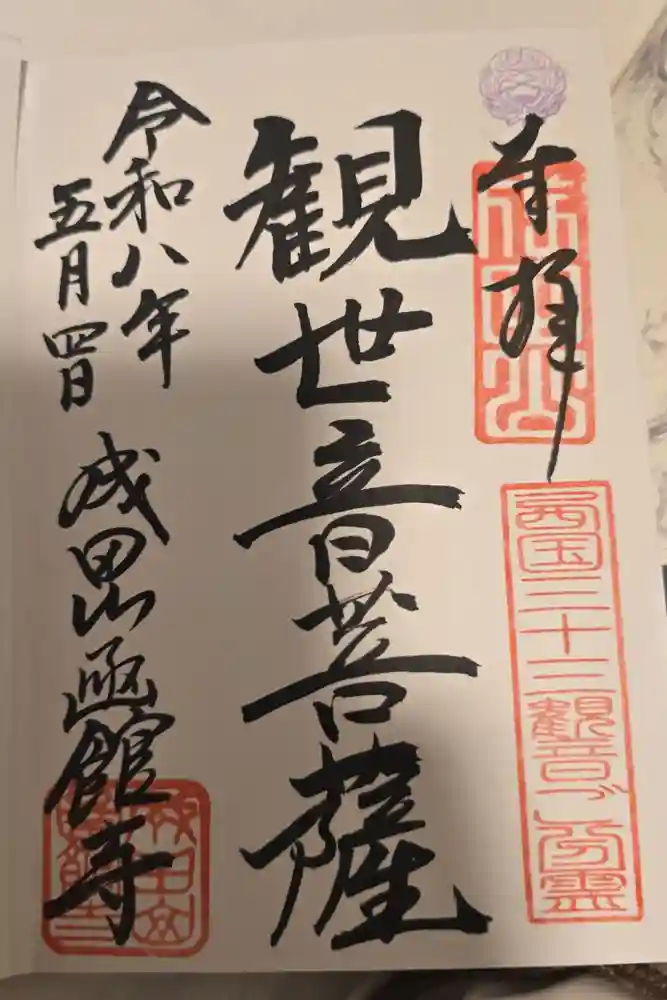 奉拝
西国三十三観音ご分霊
観世音菩薩
令和八年
五月四日
成田山函館寺